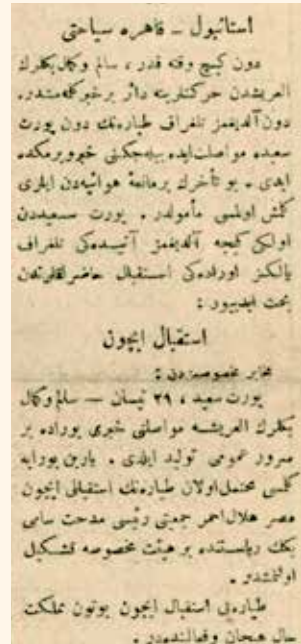 استانبول ـ قاهره سیاحتی
دون کیج وقته قدر ، سالم وکمال بکلرك
العریشدن حرکتلرینه دائر برخبر کلمه‌مشدر.
دون آلدیغمز تلغراف طیاره‌نك دون پورت
سعیده مواصلت ایده بیله‌جکنی خبر ویرمکده
ایدی . بو تأخرك برمانعهٔ هوائیه‌دن ایلری
کلمش اولمسی مأمولدر . پورت سعیددن
اولکی کیجه آلدیغمز آتیده‌کی تلغراف
یالکز اوراده‌کی استقبال حاضرلقلرندن
بحث ایدییور :
استقبال ایچون
مخابر مخصوصمزدن :
پورت سعید ، ٢٩ نیسان — سالم وکمال
بکلرك العریشه مواصلتی خبری بوراده بر
سرور عمومی تولید ایلدی . یارین بورایه
کلمسی محتمل اولان طیاره‌نك استقبالی ایچون
مصر هلال احمر جمعیتی رئیسی مدحت سامی
بکك ریاستنده بر هیئت مخصوصه تشکیل
اولنمشدر .
طیاره‌یی استقبال ایچون بوتون مملکت
حال هیجان وفعالیتده‌در .